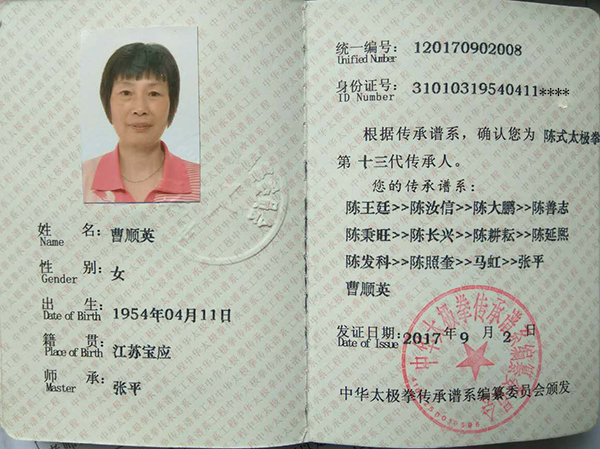 姓 名： 曹顺英
Name
性 别： 女
Gender
出 生： 1954年04月11日
Date of Birth
籍 贯： 江苏宝应
Place of Birth
师 承： 张平
Master
统一编号： 120170902008
Unified Number
身份证号： 31010319540411****
ID Number
根据传承谱系，确认您为 陈式太极拳
第 十三代传承人。
您的传承谱系：
陈王廷>>陈汝信>>陈大鹏>>陈善志
陈秉旺>>陈长兴>>陈耕耘>>陈延熙
陈发科>>陈照奎>>马虹>>张平
曹顺英
发证日期： 2017年 9 月 2 日
Date of Issue
中华太极拳传承谱系编纂委员会颁发
中华太极拳传承谱系编纂委员会